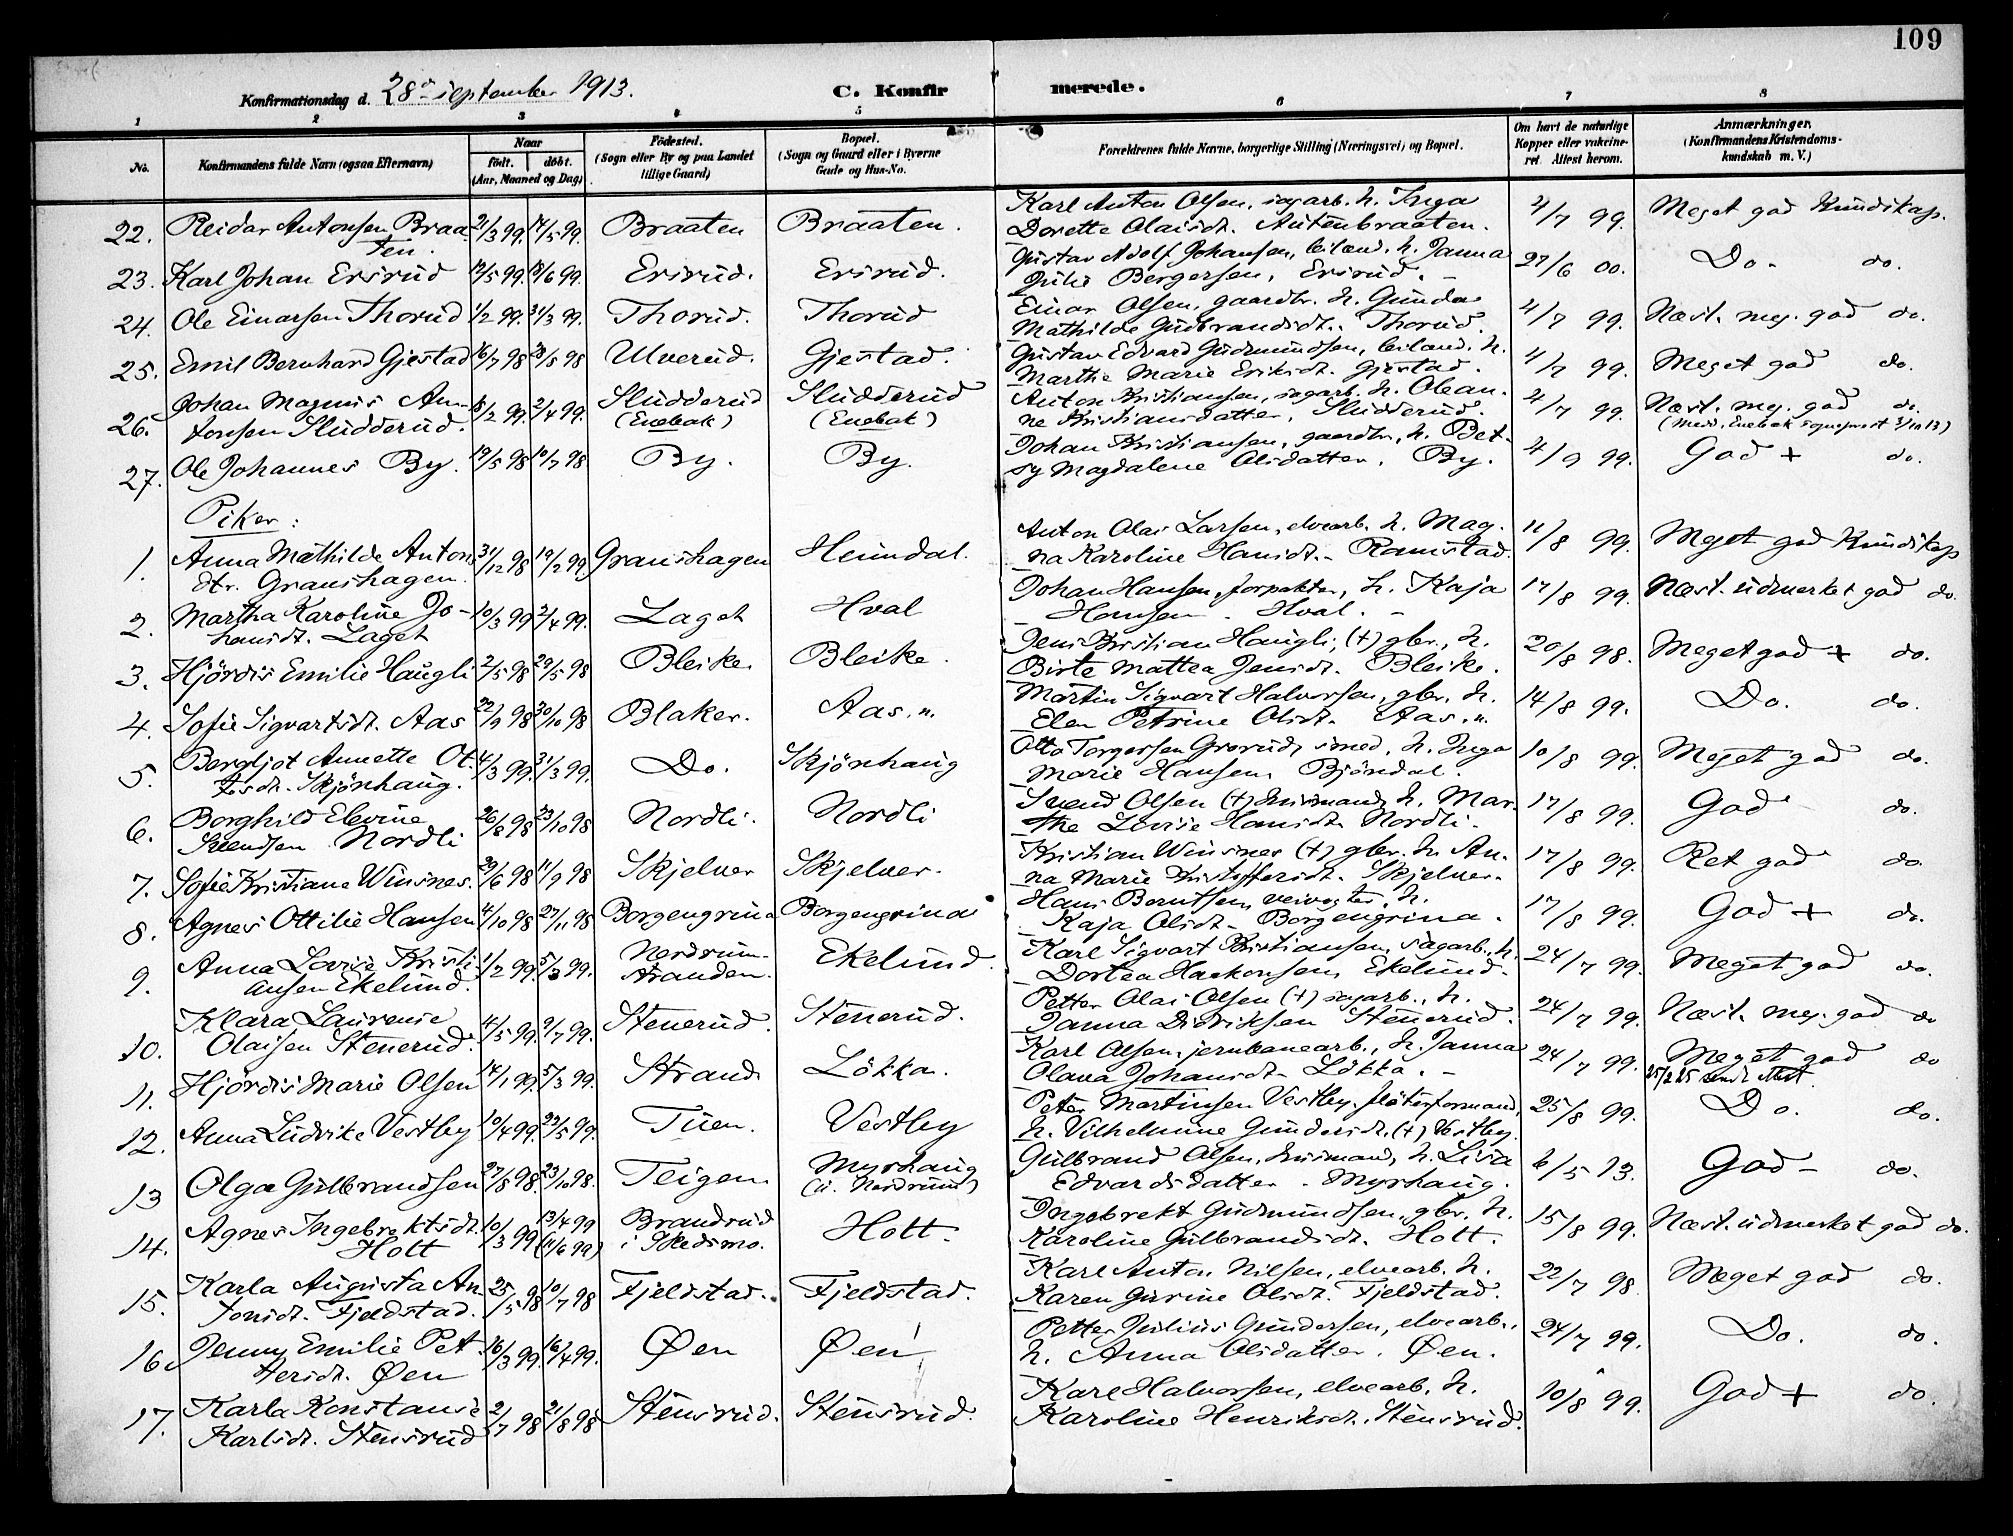 109
Konfirmationsdag d. 28de september 1913. C. Konfirmerede.
1 2 3 4 5 6 7 8
No. Konfirmandens fulde Navn (ogsaa Efternavn) Naar født. døbt. (Aar, Maaned og Dag) Fødested. (Sogn eller By og paa Landet tillige Gaard) Bopæl. (Sogn og Gaard eller i Byerne Gade og Hus-No. Forældrenes fulde Navne, borgerlige Stilling (Næringsvei) og Bopæl. Om havt de naturlige Kopper eller vakcineret. Attest herom. Anmærkninger. (Konfirmandens Kristendomskundskab m. V.)
22. Reidar Antonsen Braaten. 21/3 99. 14/5 99. Braaten Braaten. Karl Anton Olsen, sagarb. h. Inga
Dorette Olaisdt. Autenbraaten. 4/7 99. Meget god Kundskap.
23. Karl Johan Ersrud 12/5 99. 18/6 99. Ersrud. Ersrud. Gustav Adolf Johansen, leilænd. h. Janna
Julie Bergersen, Ersrud. 27/6 00. Do. do.
24. Ole Einarsen Thorud 1/2 99. 31/3 99. Thorud. Thorud Einar Olsen, gaardbr. h. Gunda
Mathilde Gudbrandsdt. Thorud. 4/7 99. Næst. meg. god do.
25. Emil Bernhard Gjestad 16/7 98 28/5 98 Ulverud. Gjestad. Gustav Edvard Gudmundsen, leilænd. h.
Marthe Marie Eriksdt. Gjestad. 4/7 99. Meget god do.
26. Johan Magnus Antonsen Sludderud. 18/2 99. 2/4 99. Sludderud (Enebak) Sludderud (Enebak) Anton Kristiansen, sagarb. h. Oleane
Kristiansdatter, Sludderud. 4/7 99. Næst. meg. god do.
(Medd. Enebak sogneprest 3/10 13)
27. Ole Johannes By. 19/5 98 10/7 98 By. By. Johan Kristiansen, gaardbr., h. Betsy
Magdalene Olsdatter, By. 4/9 99. God + do.
Piker:
1. Anna Mathilde Antonsdtr. Granshagen. 31/12 98 19/2 99 Granshagen Heimdal. Anton Olai Larsen, elvearb. h. Magna
Karoline Hansdt. Ramstad. 11/8 99. Meget god Kundskap
2. Martha Karoline Johansdt. Laget 10/3 99 2/4 99. Laget Hval Johan Hansen, forpakter, h. Kaja
Hansen. Hval. 17/8 99. Næst. udmerket god do.
3. Hjørdis Emilie Haugli 2/5 98 29/5 98 Bleike. Bleike. Jens Kristian Haugli, (+) gbr., h.
Birte Mattea Jensdt. Bleike. 20/8 98. Meget god + do.
4. Sofie Sigvartsdt. Aas 22/9 98 30/10 98 Blaker. Aas. n. Martin Sigvart Halvorsen, gbr. h.
Elen Petrine Olsdt. Aas. n. 14/8 99. Do. do.
5. Bergljot Annette Ottosdt. Skjønhaug. 4/3 99. 31/3 99. Do. Skjønhaug Otto Torgersen Grorud, smed, h. Inga
Marie Hansen, Bjøndal. 10/8 99. Meget god do.
6. Borghild Elevine Svendsen Nordli 26/8 98 23/10 98 Nordli. Nordli Svend Olsen (+) husmand, h. Marthe
Lovise Hansdt. Nordli. 17/8 99. God do.
7. Sofie Kristiane Winsnes. 29/6 98 11/9 98 Skjelver Skjelver. Kristian Winsnes (+) gbr. h. Anna
Marie Kristoffersdt. Skjelver. 17/8 99. Ret god do.
8. Agnes Ottilie Hansen 4/10 98 27/11 98 Borgengrina Borgengrina Hans Berntsen, veivogter, h.
Kaja Olsdt. Borgengrina. 17/8 99. God + do.
9. Anna Lovise Kristiansen Ekelund. 1/2 99. 5/3 99. Nordrumstranden. Ekelund. Karl Sigvart Kristiansen, sagarb., h.
Dortea Haakonsen, Ekelund. 24/7 99. Meget god do.
10. Klara Laurense Olaisen Stenerud. 4/5 99. 9/7 99. Stenerud. Stenerud. Petter Olai Olsen (+) sagarb., h.
Janna Didriksen Stenerud. 24/7 99. Næst. meg. god do
11. Hjørdis Marie Olsen 14/1 99. 5/3 99. Strand Løkka. Karl Olsen, jernbanearb., h. Janna
Olava Johansdt. Løkka. 24/7 99. Meget god do
25/2 25 sendt attest.
12. Anna Ludvike Vestby 10/4 99. 22/5 99. Tuen. Vestby Peter Martinsen Vestby, fløterformand,
h. Vilhelmine Gundersdt. (+) Vestby. 25/8 99. Do. do.
13 Olga Gulbrandsen 27/8 98. 23/10 98. Teigen. Myrhaug (u. Nordrum) Gulbrand Olsen, husmand, h. Lisa
Edvardsdatter. Myrhaug. 6/5 13. God - do.
14. Agnes Ingebrektsdt. Holt 10/3 99 13/4 99 (11/6 99) Brandrud i Skedsmo. Holt. Ingebrekt Gudmundsen, gbr. h.
Karoline Gulbrandsdt. Holt. 15/8 99. Næst. udmerket god do.
15. Karla Augusta Antonsdt. Fjeldstad. 25/5 98 10/7 98 Fjeldstad. Fjeldstad. Karl Anton Nilsen, elvearb. h.
Karen Gurine Olsdt. Fjeldstad. 22/7 98. Meget god do.
16 Jenny Emilie Pettersdt. Øen 16/3 99. 16/4 99. Øen Øen Petter Julius Gundersen, elvearb.,
h. Anna Olsdatter. Øen. 24/7 99. Do. do.
17. Karla Konstanse Karlsdt. Stensrud 2/7 98 21/8 98 Stensrud. Stensrud. Karl Halvorsen, elvearb. h.
Karoline Henriksdt. Stensrud. 10/8 99. God + do.